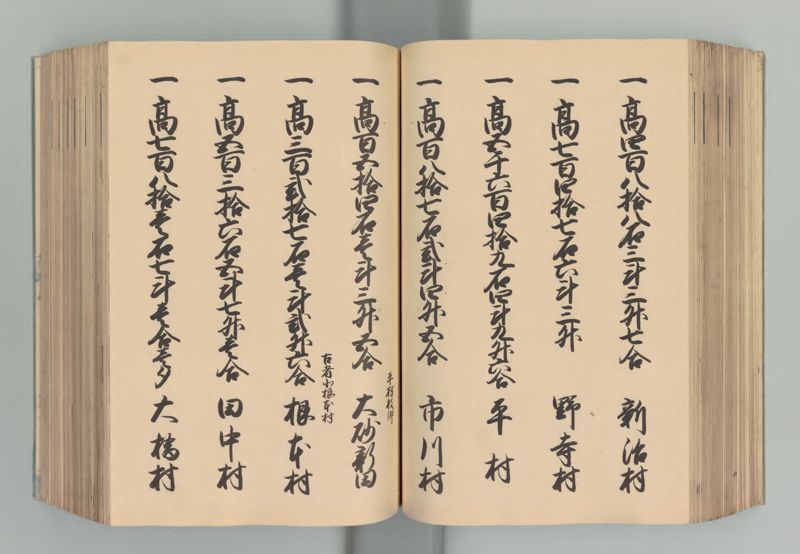 一高四百八拾八石三斗三升七合　新治村
一高七百四拾七石六斗三升　野寺村
一高五千六百四拾九石四斗九升六合　平村
一高百八拾七石弐斗四升五合　市川村
平村枝郷
一高百五拾四石壱斗三升五合　大砂新田
古者小根本村
一高三百弐拾七石壱斗弐升六合　根本村
一高五百三拾六石五斗七升壱合　田中村
一高七百八拾壱石七斗壱合壱夕　大橋村